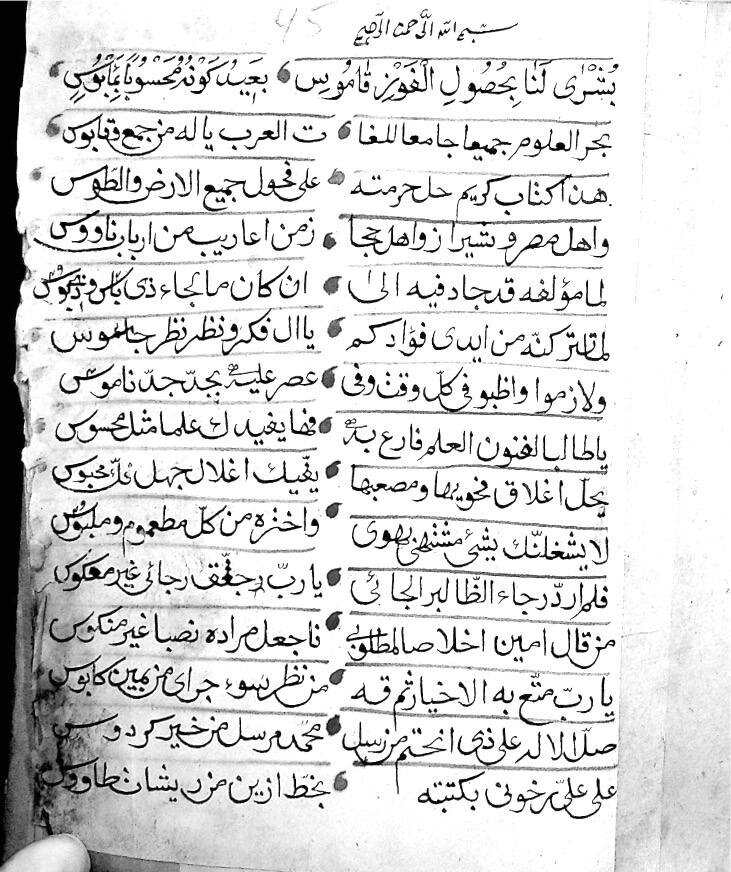 45
بسم الله الرحمن الرحيم
بُشْرٰى لَنٰا بِحُصُولِ الْفَوْزِ قٰامُوسِ بعَيد كَوْنُهُ مَحْسُوبًا بِمٰابُوسِ
بحر العلوم جميعا جامعا للغا ت العرب ياله من جمع وقابوس
هذا كتاب كريم حل حرمته على فحول جميع الارض والطوس
واهل مصر وشيراز واهل حجا زمن اعاريب من ارباب ناووس
لما مؤلفه قد جاد فيه الى ان كان ما لجاء ذى باس ودبوس
من ايدى فؤادكم ياال فكر ونظر نظر جاموس
ولازموا واظبو فى كلّ وقت وفى عصر عليه بجدّ جدّ ناموس
ياطالبا لفنون العلم فارع به فها يفيدك علما مثل محسوس
يحل اغلاق فحويها ومصعبها يفيك اغلال جهل كلّ محبوس
لا يشغلنّك بشئ مشتهى بهوى واخذه من كلّ مطعوم وملبوس
فلم ارد رجاء الظالب الجائى يا ربّ رجائى غير معكوس
من قال امين اخلاصا لمطلوبى فاجعل مراده نصبا غير منكوس
يا ربّ متّع به الاخيار ثم قه من نظر سوء جراى من يمين كابوس
صل الاله على ذى الختم من رسل محمد مرسل من خير كردوس
على علىّ رخونى بكتبته بخطّ ازين من ريشات طاووس